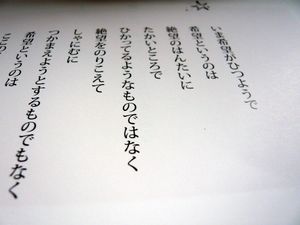 いま希望がひつようで
希望というのは
絶望のはんたいに
たかいところで
ひかってるようなものではなく
絶望をのりこえて
しゃにむに
つかまえようとするものでもなく
希望というのは